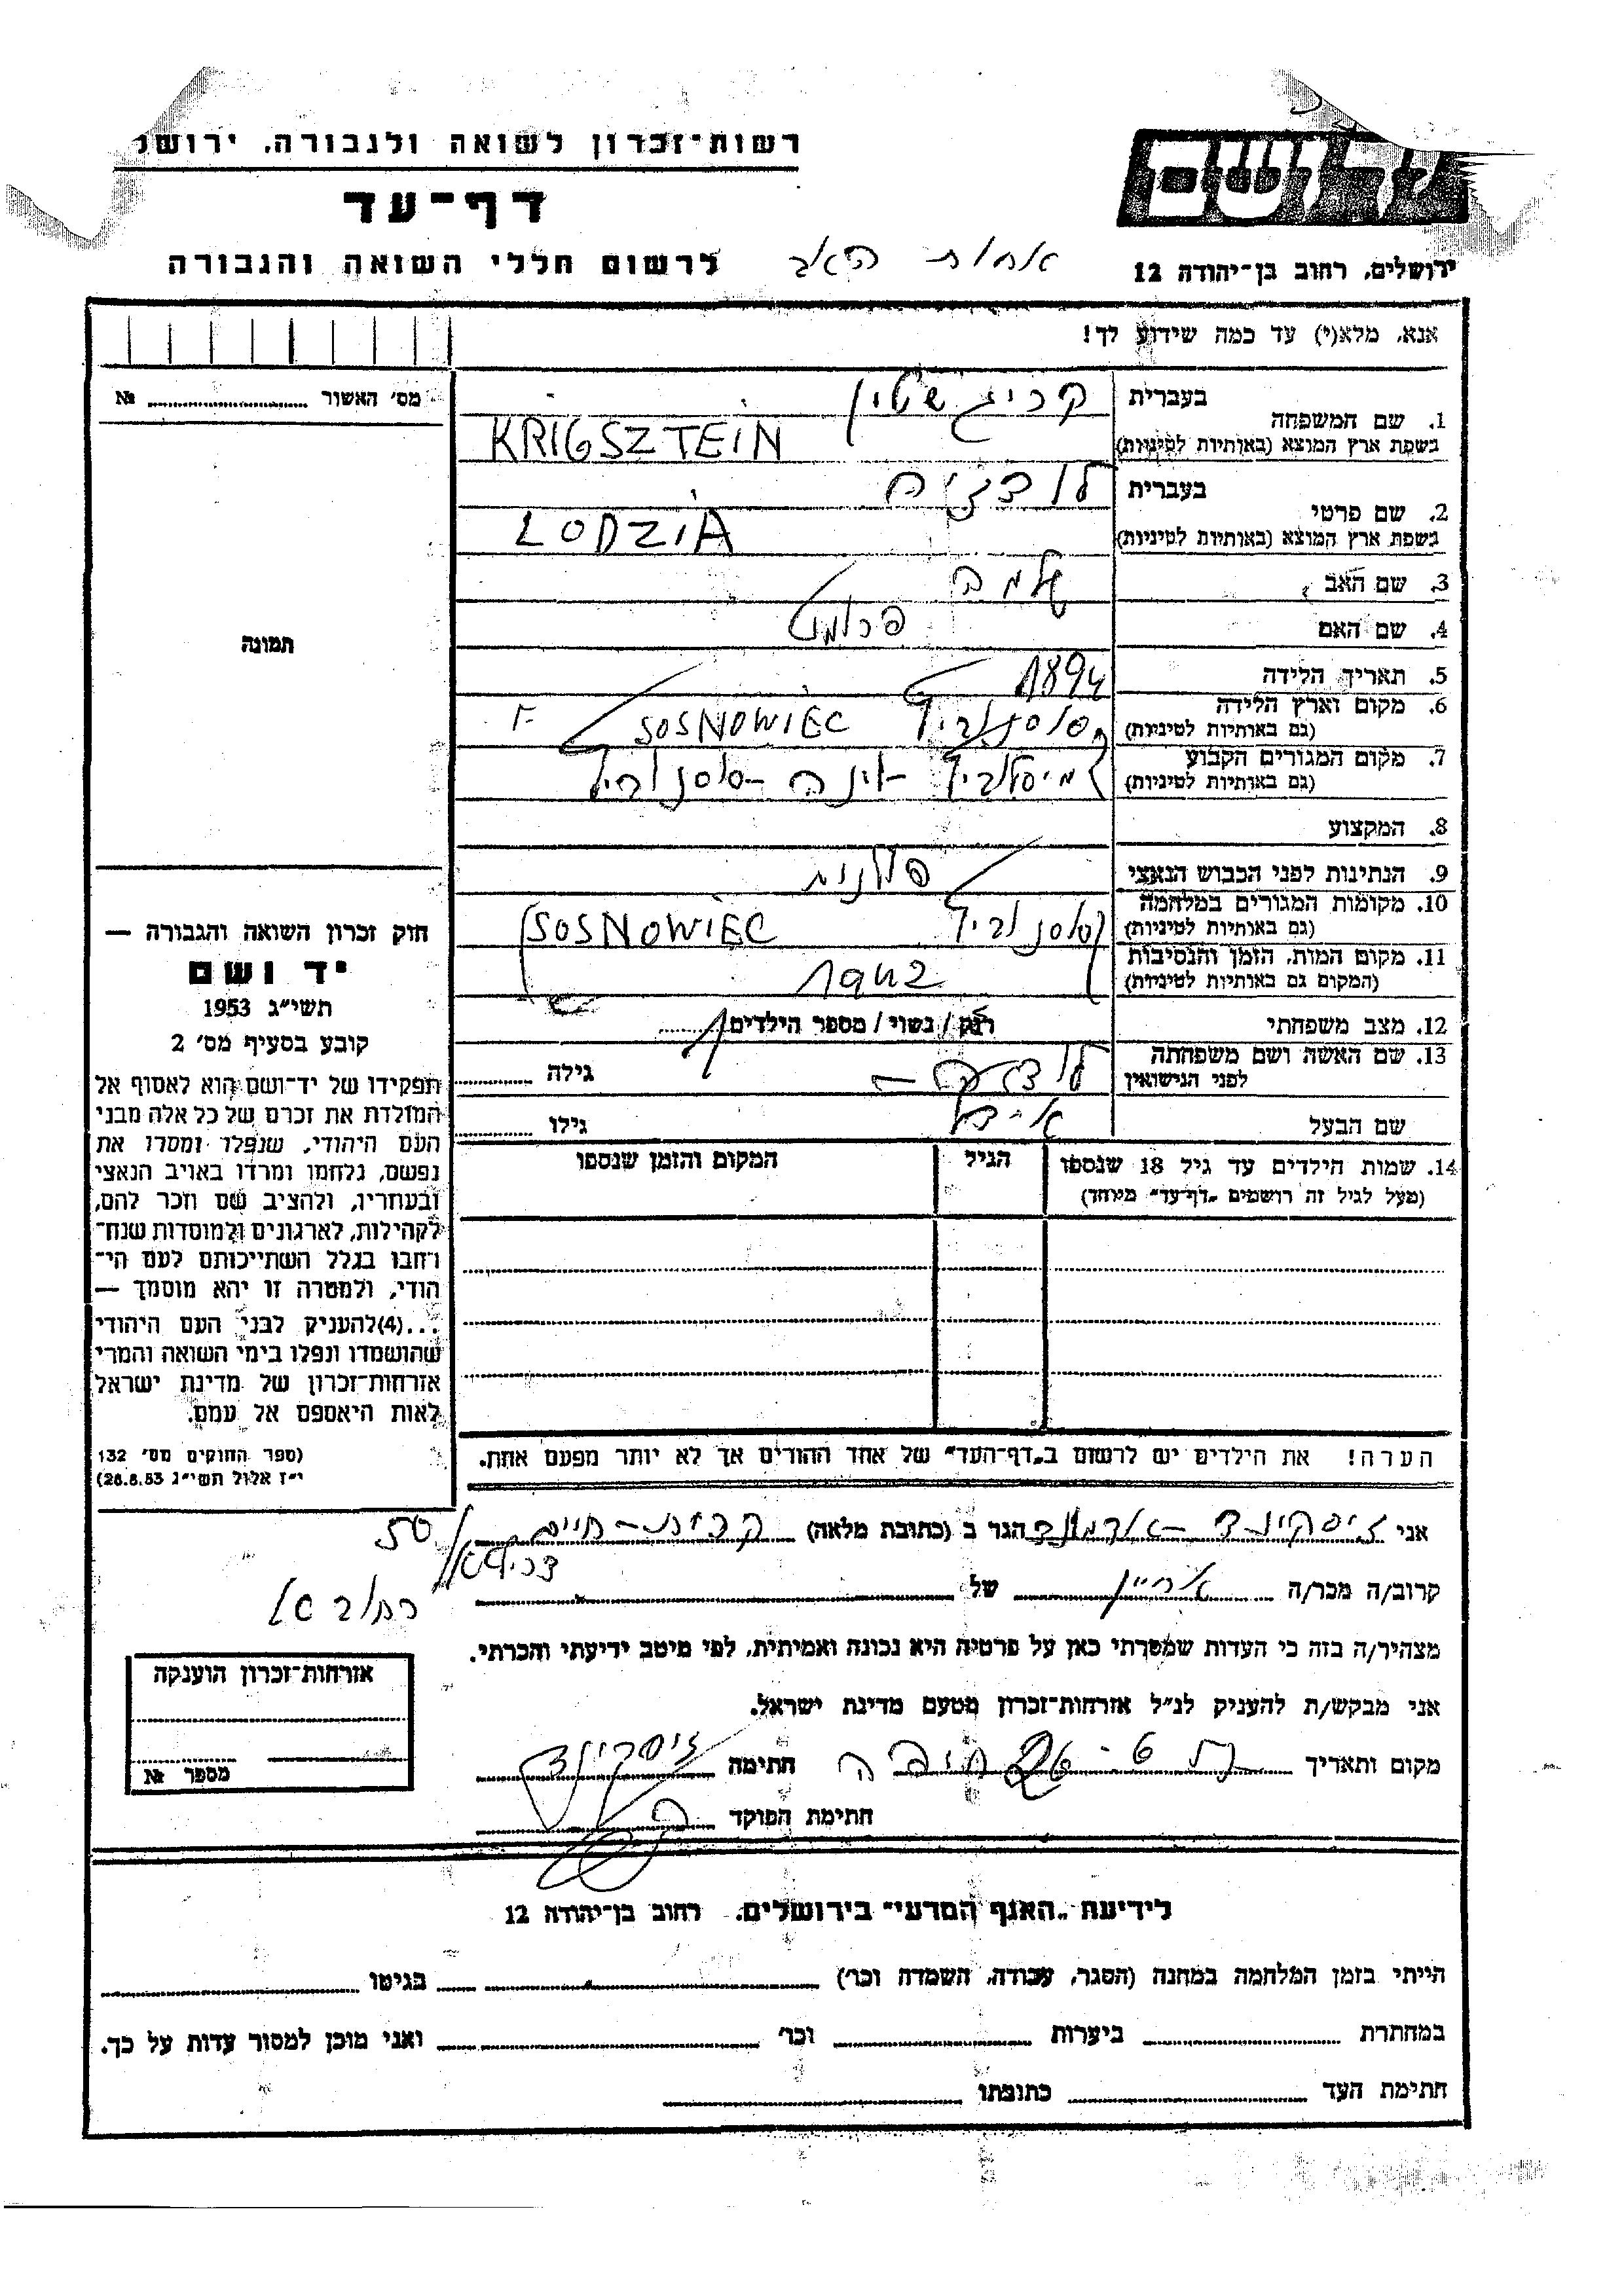 רשות־זכרון לשואה ולגבורה, ירושל
דף־עד
לרשום חללי השואה והגבורה
אחות האב
ירושלים, רחוב בן־יהודה 12
אנא, מלא(י) עד כמה שידוע לך!
מס׳ האשור № 
1. שם המשפחה בעברית קריגשטיין
בשפת ארץ המוצא (באותיות לטיניות) KRIGSZTEIN
2. שם פרטי בעברית לודזיה
בשפת ארץ המוצא (באותיות לטיניות) LODZIA
3. שם האב שלמה
4. שם האם
5. תאריך הלידה 1894
6. מקום וארץ הלידה סוסנוביץ SOSNOWIEC F
(גם באותיות לטיניות)
7. מקום המגורים הקבוע סוסנוביץ
(גם באותיות לטיניות)
8. המקצוע
9. הנתינות לפני הכבוש הנאצי פולנית
10. מקומות המגורים במלחמה סוסנוביץ SOSNOWIEC
(גם באותיות לטיניות)
11. מקום המות, הזמן והנסיבות 1942
(המקום גם באותיות לטיניות)
12. מצב משפחתי רוק / נשוי / מספר הילדים 1
13. שם האשה ושם משפחתה לפני הנישואין לודזיה גילה
שם הבעל גילו
14. שמות הילדים עד גיל 18 שנספו הגיל המקום והזמן שנספו
(מעל לגיל זה רושמים „דף־עד״ מיוחד)
הערה! את הילדים יש לרשום ב„דף־העד״ של אחד ההורים אך לא יותר מפעם אחת.
תמונה
חוק זכרון השואה והגבורה —
יד ושם
תשי״ג 1953
קובע בסעיף מס׳ 2
תפקידו של יד־ושם הוא לאסוף אל
המולדת את זכרם של כל אלה מבני
העם היהודי, שנפלו ומסרו את
נפשם, נלחמו ומרדו באויב הנאצי
ובעוזריו, ולהציב שם וזכר להם,
לקהילות, לארגונים ולמוסדות שנח־
רבו בגלל השתייכותם לעם הי־
הודי, ולמטרה זו יהא מוסמך —
...(4)להעניק לבני העם היהודי
שהושמדו ונפלו בימי השואה והמרי
אזרחות־זכרון של מדינת ישראל
לאות היאספם אל עמם.
(ספר החוקים מס׳ 132
י״ז אלול תשי״ג 28.8.53)
אני זיסקינד הגר ב (כתובת מלאה) קרית־חיים
קרוב/ה מכר/ה אחיין של
רחוב 50
מצהיר/ה בזה כי העדות שמסרתי כאן על פרטיה היא נכונה ואמיתית, לפי מיטב ידיעתי והכרתי.
אני מבקש/ת להעניק לנ״ל אזרחות־זכרון מטעם מדינת ישראל.
מקום ותאריך חתימה זיסקינד
חתימת הפוקד
אזרחות־זכרון הוענקה
מספר №
לידיעת „האגף המדעי״ בירושלים, רחוב בן־יהודה 12
הייתי בזמן המלחמה במחנה (הסגר, עבודה, השמדה וכו׳) בגיטו
במחתרת ביערות וכו׳ ואני מוכן למסור עדות על כך.
חתימת העד כתובתו